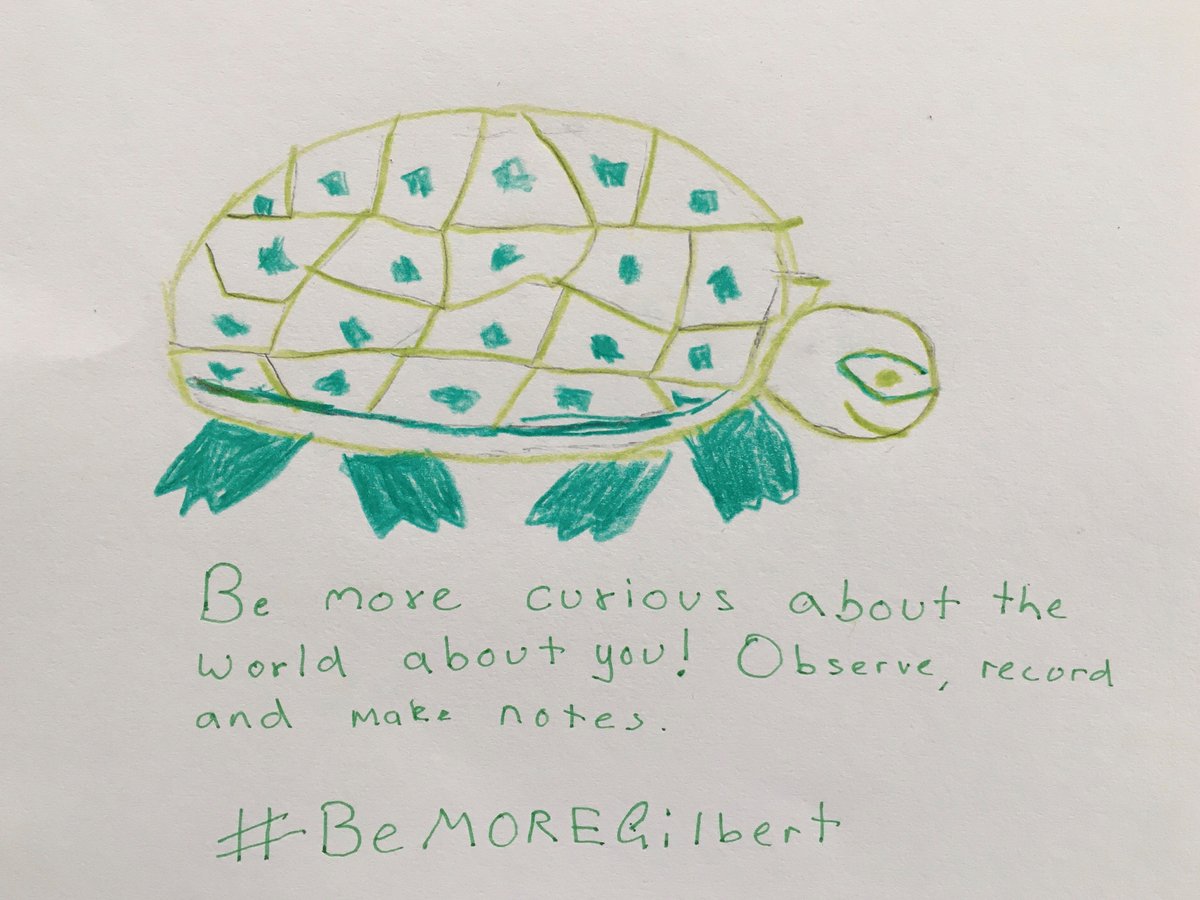 Be more curious about the
world about you! Observe, record
and make notes.
#BeMOREGilbert